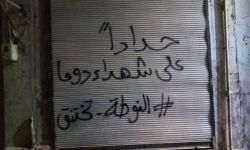 حداداً
على شهداء دوما
#الغوطة_تختنق